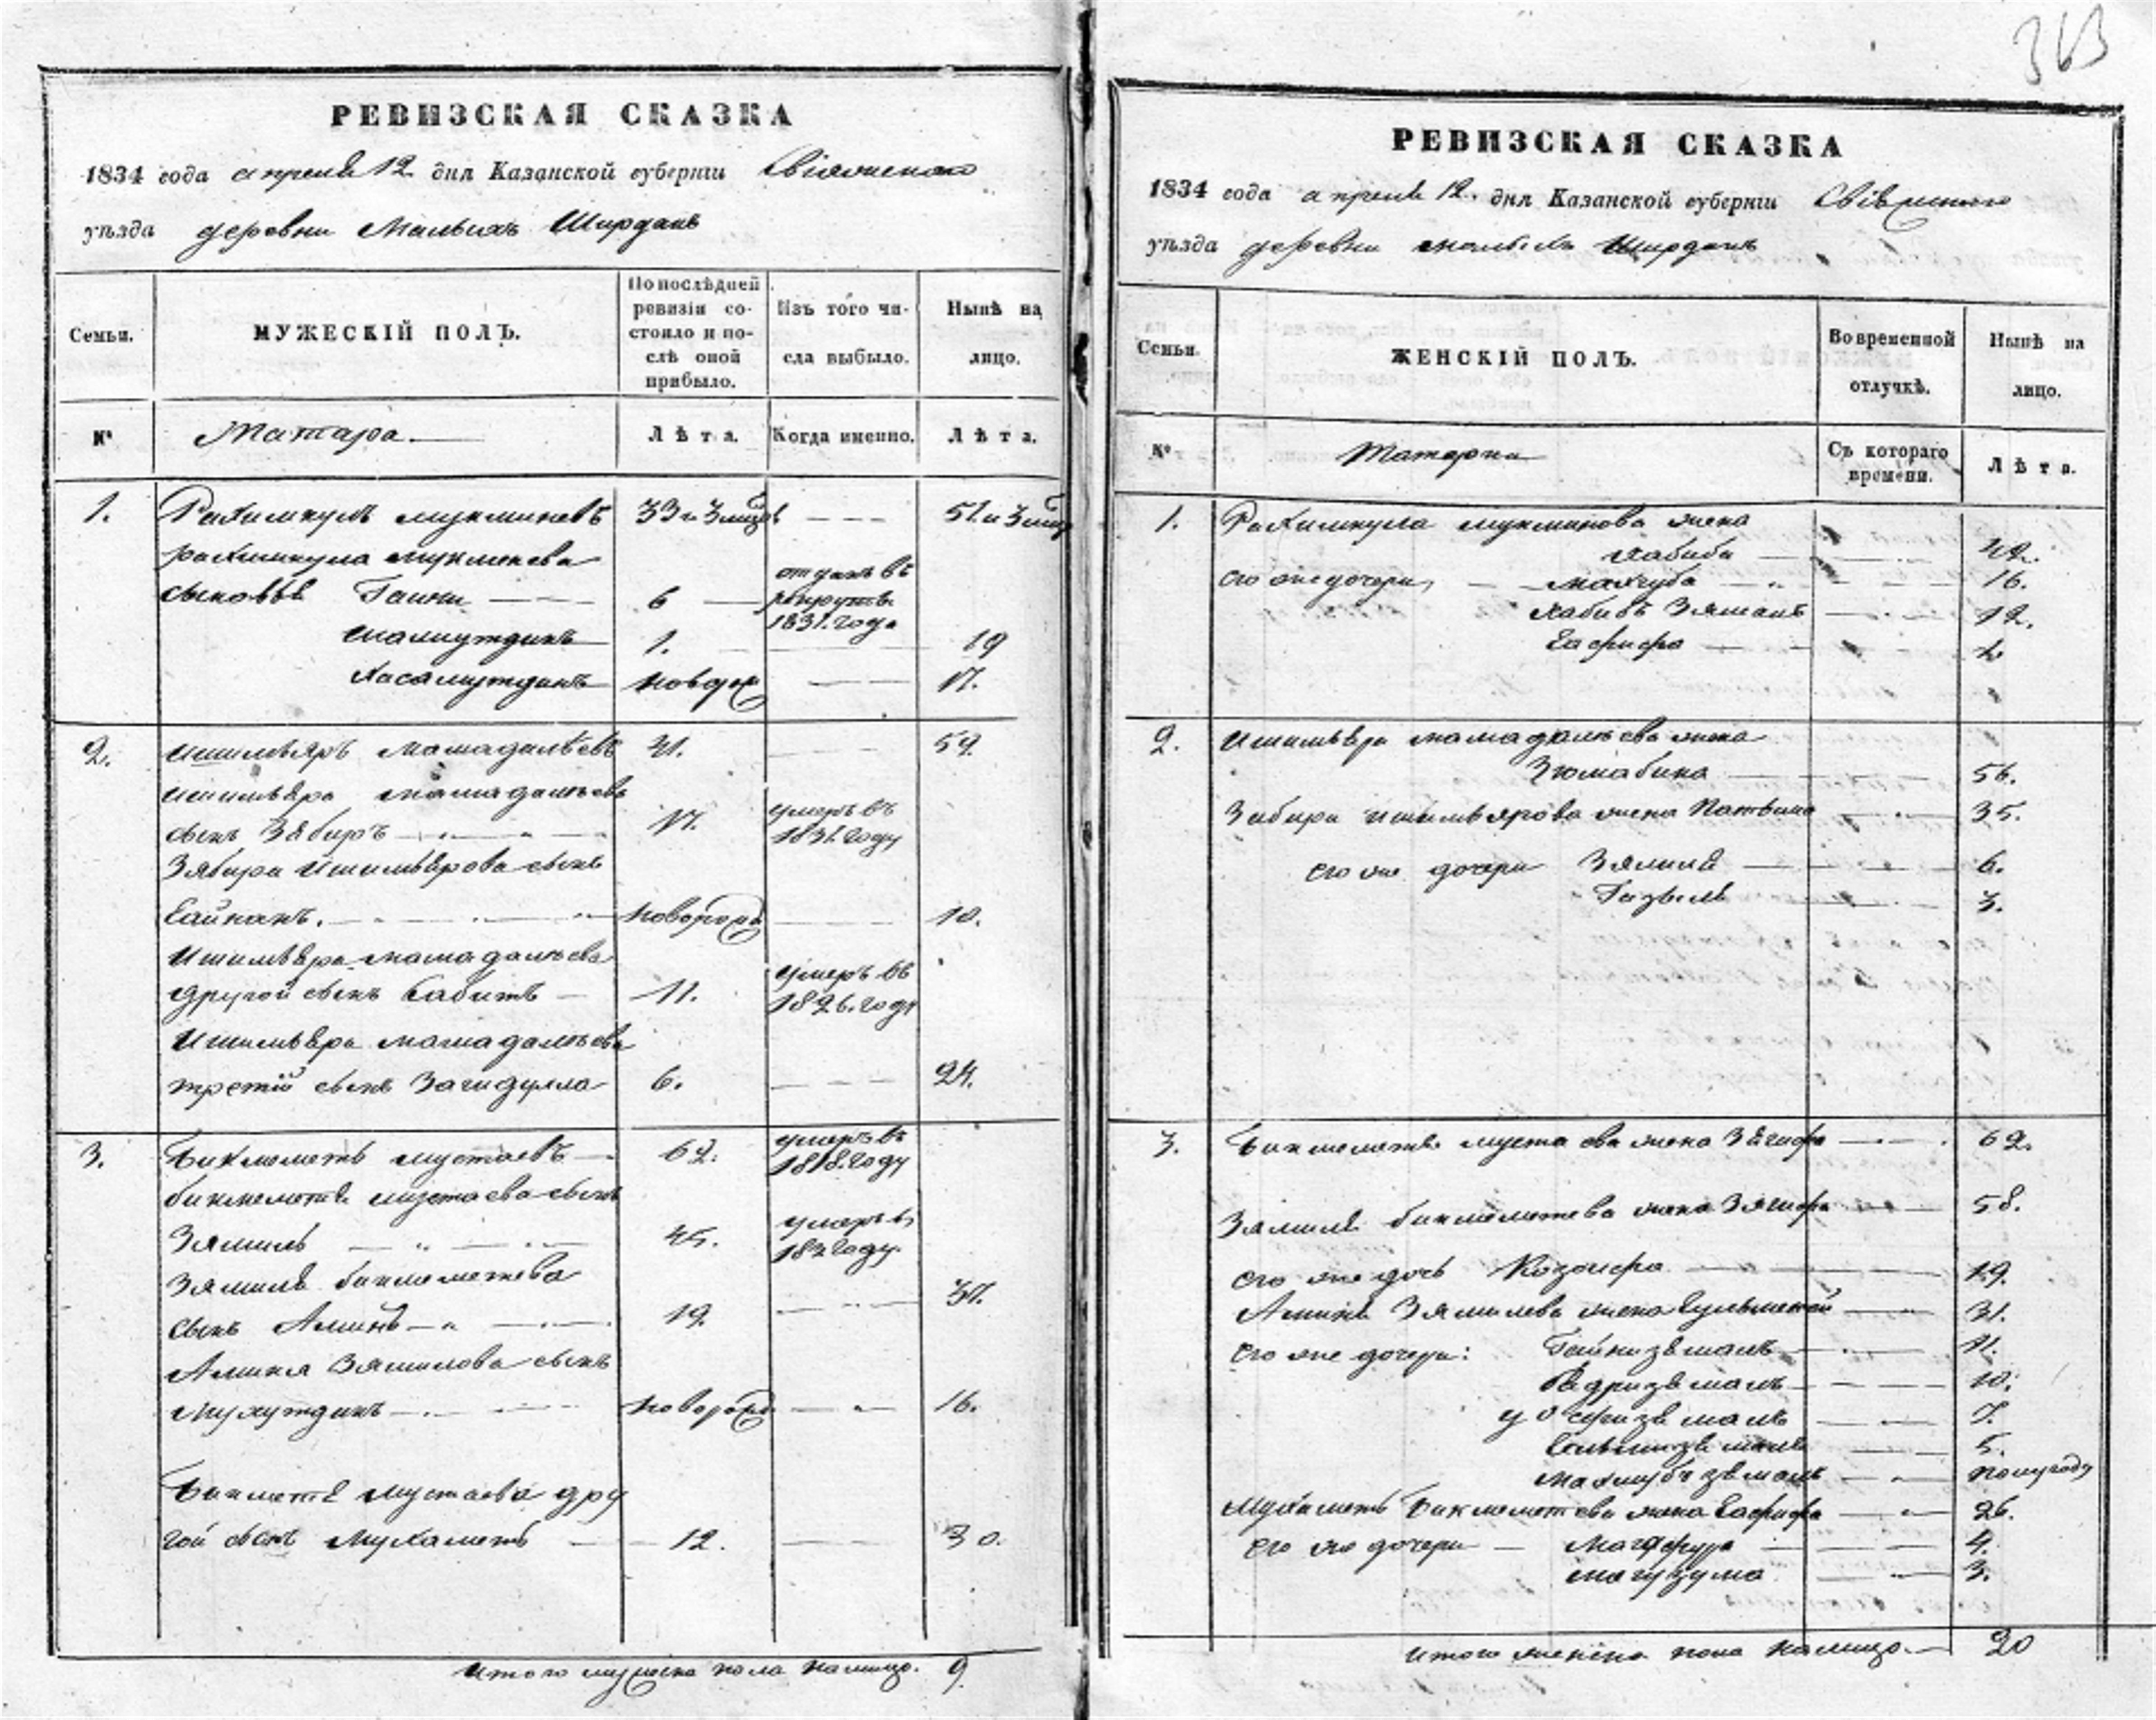 363
РЕВИЗСКАЯ СКАЗКА
1834 года апреля 12 дня Казанской губерніи Свіяжскаго
уѣзда деревни Малыхъ Ширданъ
Семьи.
МУЖЕСКІЙ ПОЛЪ.
По послѣдней
ревизіи со-
стояло и по-
слѣ оной
прибыло.
Изъ того чи-
сла выбыло.
Нынѣ на
лицо.
№
Татара.
Лѣта.
Когда именно.
Лѣта.
1. Рахимкулъ Мукминевъ 33 и 3 51 и 3
рахимкула мукменева
сыновья Гаини 6 отданъ въ рекруты 1831. года
1. 19
Хисамутдинъ новорж 17.
2. Ишимьяръ Мамадалѣевъ 41. 59.
ишимьяра мамадалѣева
сынъ Зябиръ 17. умеръ въ 1831. году
Зябира Ишимьярова сынъ
новорожд 10.
Ишимьяра мамадалѣева
другой сынъ Сабитъ 11. умеръ въ 1826. году
Ишимьяра мамадалѣева
третій сынъ Загидулла 6. 24.
3. Бикмеметь мустаевъ 62. умеръ въ 1818. году
бикмеметя мустаева сынъ
Зямиль 45. умеръ въ году
Зямиля бикмеметева
сынъ Аминъ 19. 37.
Амина Зямилова сынъ
новорожд 16.
Бикметя Мустаева дру
гой сынъ Мухаметь 12. 30.
Итого мужеска пола налицо. 9
РЕВИЗСКАЯ СКАЗКА
1834 года апреля 12. дня Казанской губерніи Свіяжскаго
уѣзда деревни малыхъ Ширданъ
Семьи.
ЖЕНСКІЙ ПОЛЪ.
Во временной
отлучкѣ.
Нынѣ на
лицо.
№
Татарки
Съ котораго
времени.
Лѣта.
1. Рахимкула мукминова жена
Хабиба 42.
его же дочери, Махчуба 16.
Хабибъ Зяманъ 12.
Сафифа
2. Ишимьяра мамадалѣева жена
Зюмабика 56.
Зябира ишимьярова жена 35.
его же дочери Зялиля 6.
Газиля 3.
3. Бикмеметя мустаева жена Зягифа 62.
Зямиля бикмеметева жена Зягифа 58.
его же дочь 19.
Амина Зямилева жена 31.
его же дочери: Гайнизямалъ 11.
Бядризямалъ 10.
7.
5.
полугоду
Мухаметь Бикмеметева жена Сафифа 26.
его же дочери Магфура 4.
3.
Итого женска пола налицо. 20